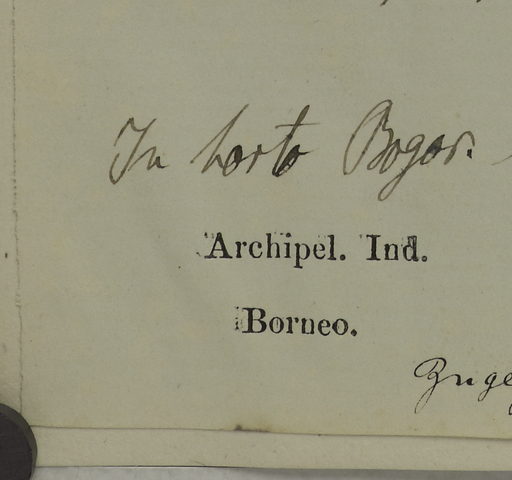 In horto Bogor.
Archipel. Ind.
Borneo.